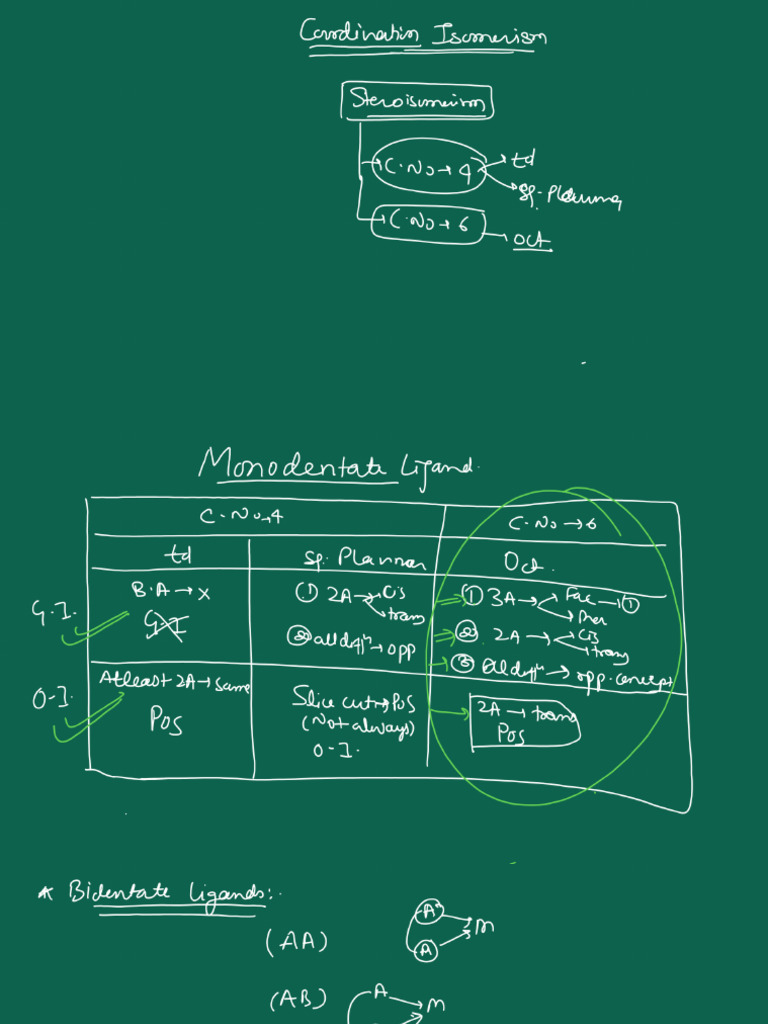 Coordination Isomerism
Steroisomerism
C.No → 4 → td
→ sq. Planner
C.No → 6 → oct
Monodentate Ligand.
C.No → 4
C.No → 6
td
Sq. Planner
Oct.
G.I.
B.A → x
G.I
① 2A → Cis
→ trans
② all diffⁿ → opp
① 3A → Fac → ①
→ Mer
② 2A → Cis
→ trans
③ all diffⁿ → opp. concept
O.I.
Atleast 2A → same
POS
Slice cut → POS
(Not always)
O.I.
2A → trans
POS
* Bidentate Ligands:.
(AA)
A
A
M
(AB)
A → M